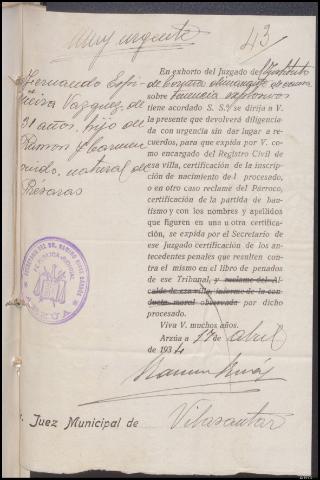 Muy urgente
43
Fernando Espi-
ñeira Vazquez de
31 años, hijo de
Ramon y Carmen
natural de
Presaras
En exhorto del Juzgado de Instituto
de
sobre Tenencia explosivos
tiene acordado S. S.ª se dirija a V.
la presente que devolverá diligencia-
da con urgencia sin dar lugar a re-
cuerdos, para que expida por V. co-
mo encargado del Registro Civil de
esa villa, certificación de la inscrip-
ción de nacimiento del procesado,
o en otro caso reclame del Párroco,
certificación de la partida de bau-
tismo y con los nombres y apellidos
que figuren en una u otra certifica-
ción, se expida por el Secretario de
ese Juzgado certificación de los an-
tecedentes penales que resulten con-
tra el mismo en el libro de penados
de ese Tribunal, y reclame del Al-
calde de esa villa, informe de la con-
ducta moral observada por dicho
procesado.
Viva V. muchos años.
Arzúa a 17 de abril
de 1934
ARZUA
Juez Municipal de Vilasantar